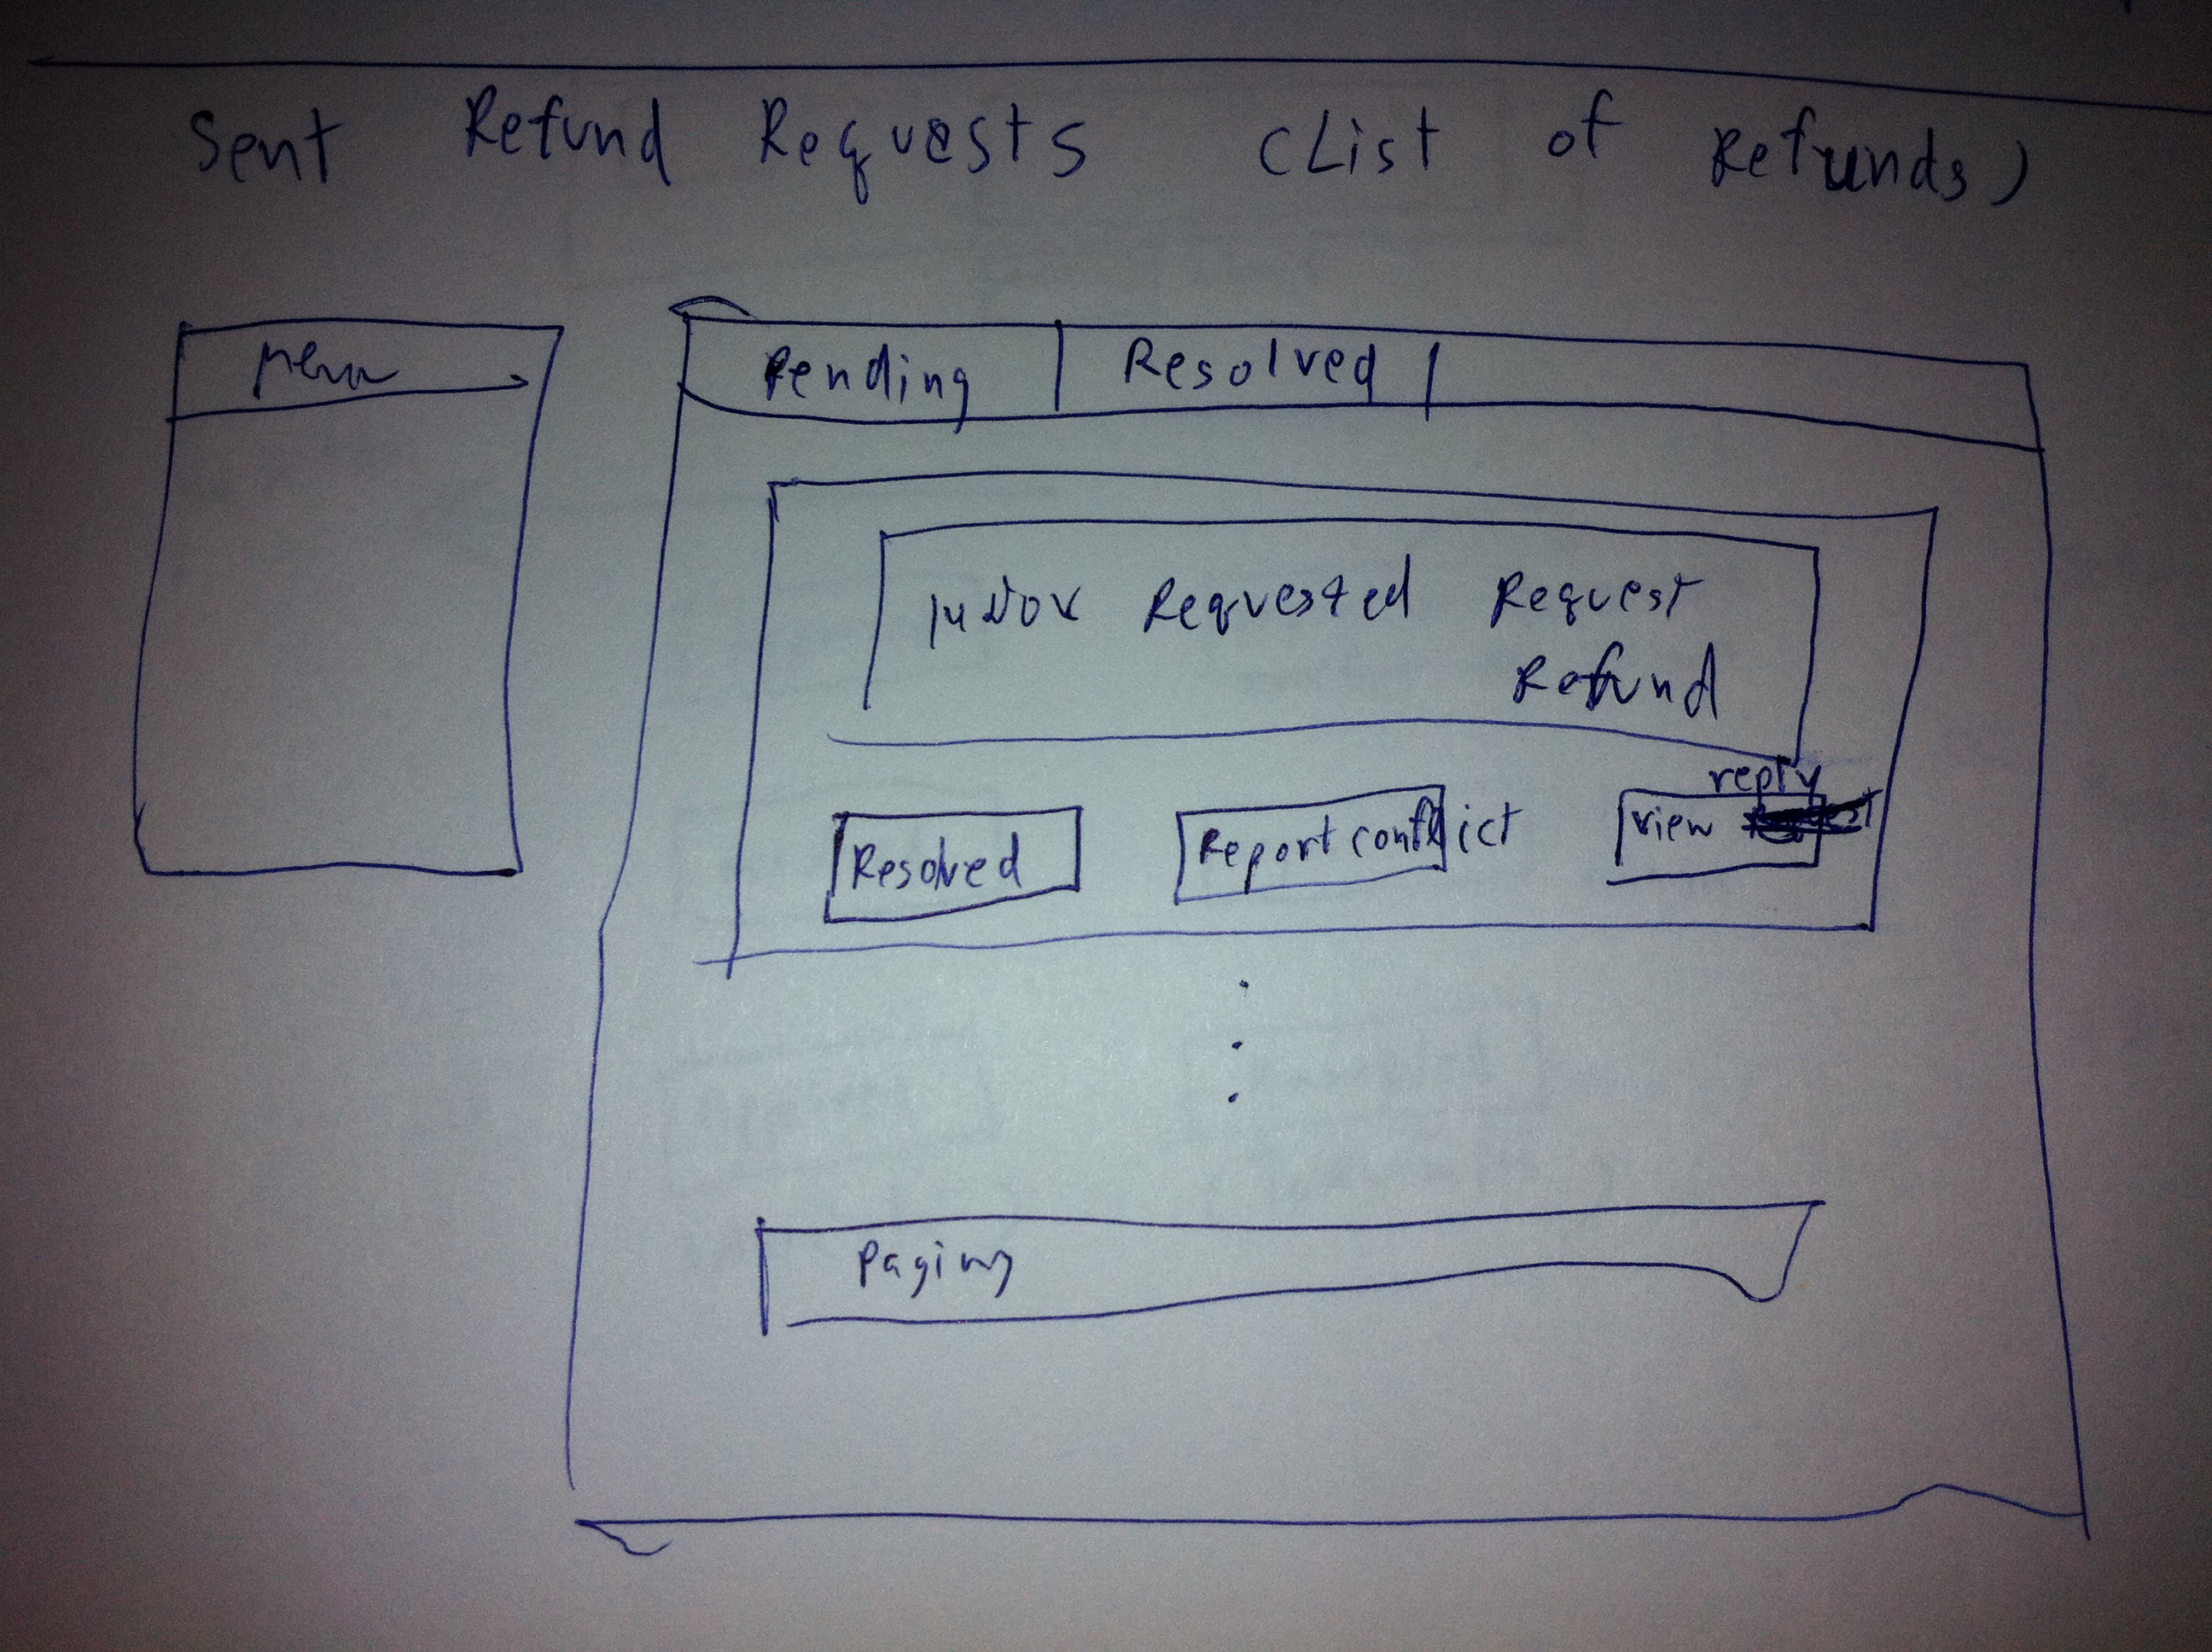 Sent Refund Requests (List of Refunds)
Menu
Pending Resolved
Requested Request
Refund
Resolved Report conflict View reply
Paging